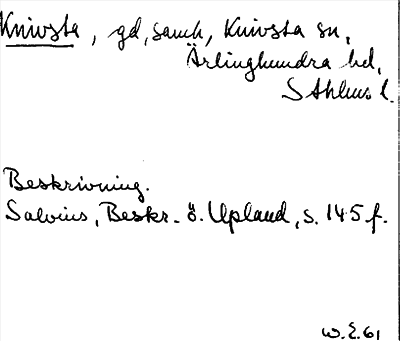 Knivsta, gd, samh, Knivsta sn,
Ärlinghundra hd,
Sthlms l.
Beskrivning.
Salvius, Beskr. ö. Upland, s. 145 f.
W.E. 61